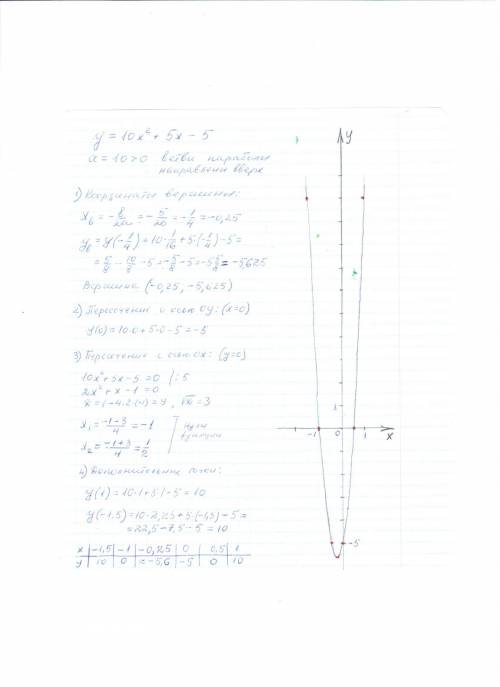 y = 10x² + 5x - 5
a = 10 > 0 ветви параболы
направлены вверх
1) Координаты вершины:
x_в = -b/2a = -5/20 = -1/4 = -0,25
y_в = y(-1/4) = 10·1/16 + 5·(-1/4) - 5 =
= 5/8 - 10/8 - 5 = -5/8 - 5 = -5 5/8 = -5,625
Вершина (-0,25, -5,625)
2) Пересечение с осью OY: (x=0)
y(0) = 10·0 + 5·0 - 5 = -5
3) Пересечение с осью OX: (y=0)
10x² + 5x - 5 = 0 | :5
2x² + x - 1 = 0
D = 1 - 4·2·(-1) = 9, √D = 3
x₁ = (-1-3)/4 = -1
x₂ = (-1+3)/4 = 1/2
Нули
функции
4) Дополнительные точки:
y(1) = 10·1 + 5·1 - 5 = 10
y(-1.5) = 10·2,25 + 5·(-1,5) - 5 =
= 22,5 - 7,5 - 5 = 10
x | -1,5 | -1 | -0,25 | 0 | 0,5 | 1
y | 10 | 0 | ≈-5,6 | -5 | 0 | 10
y
1
-1 0 1 x
-5